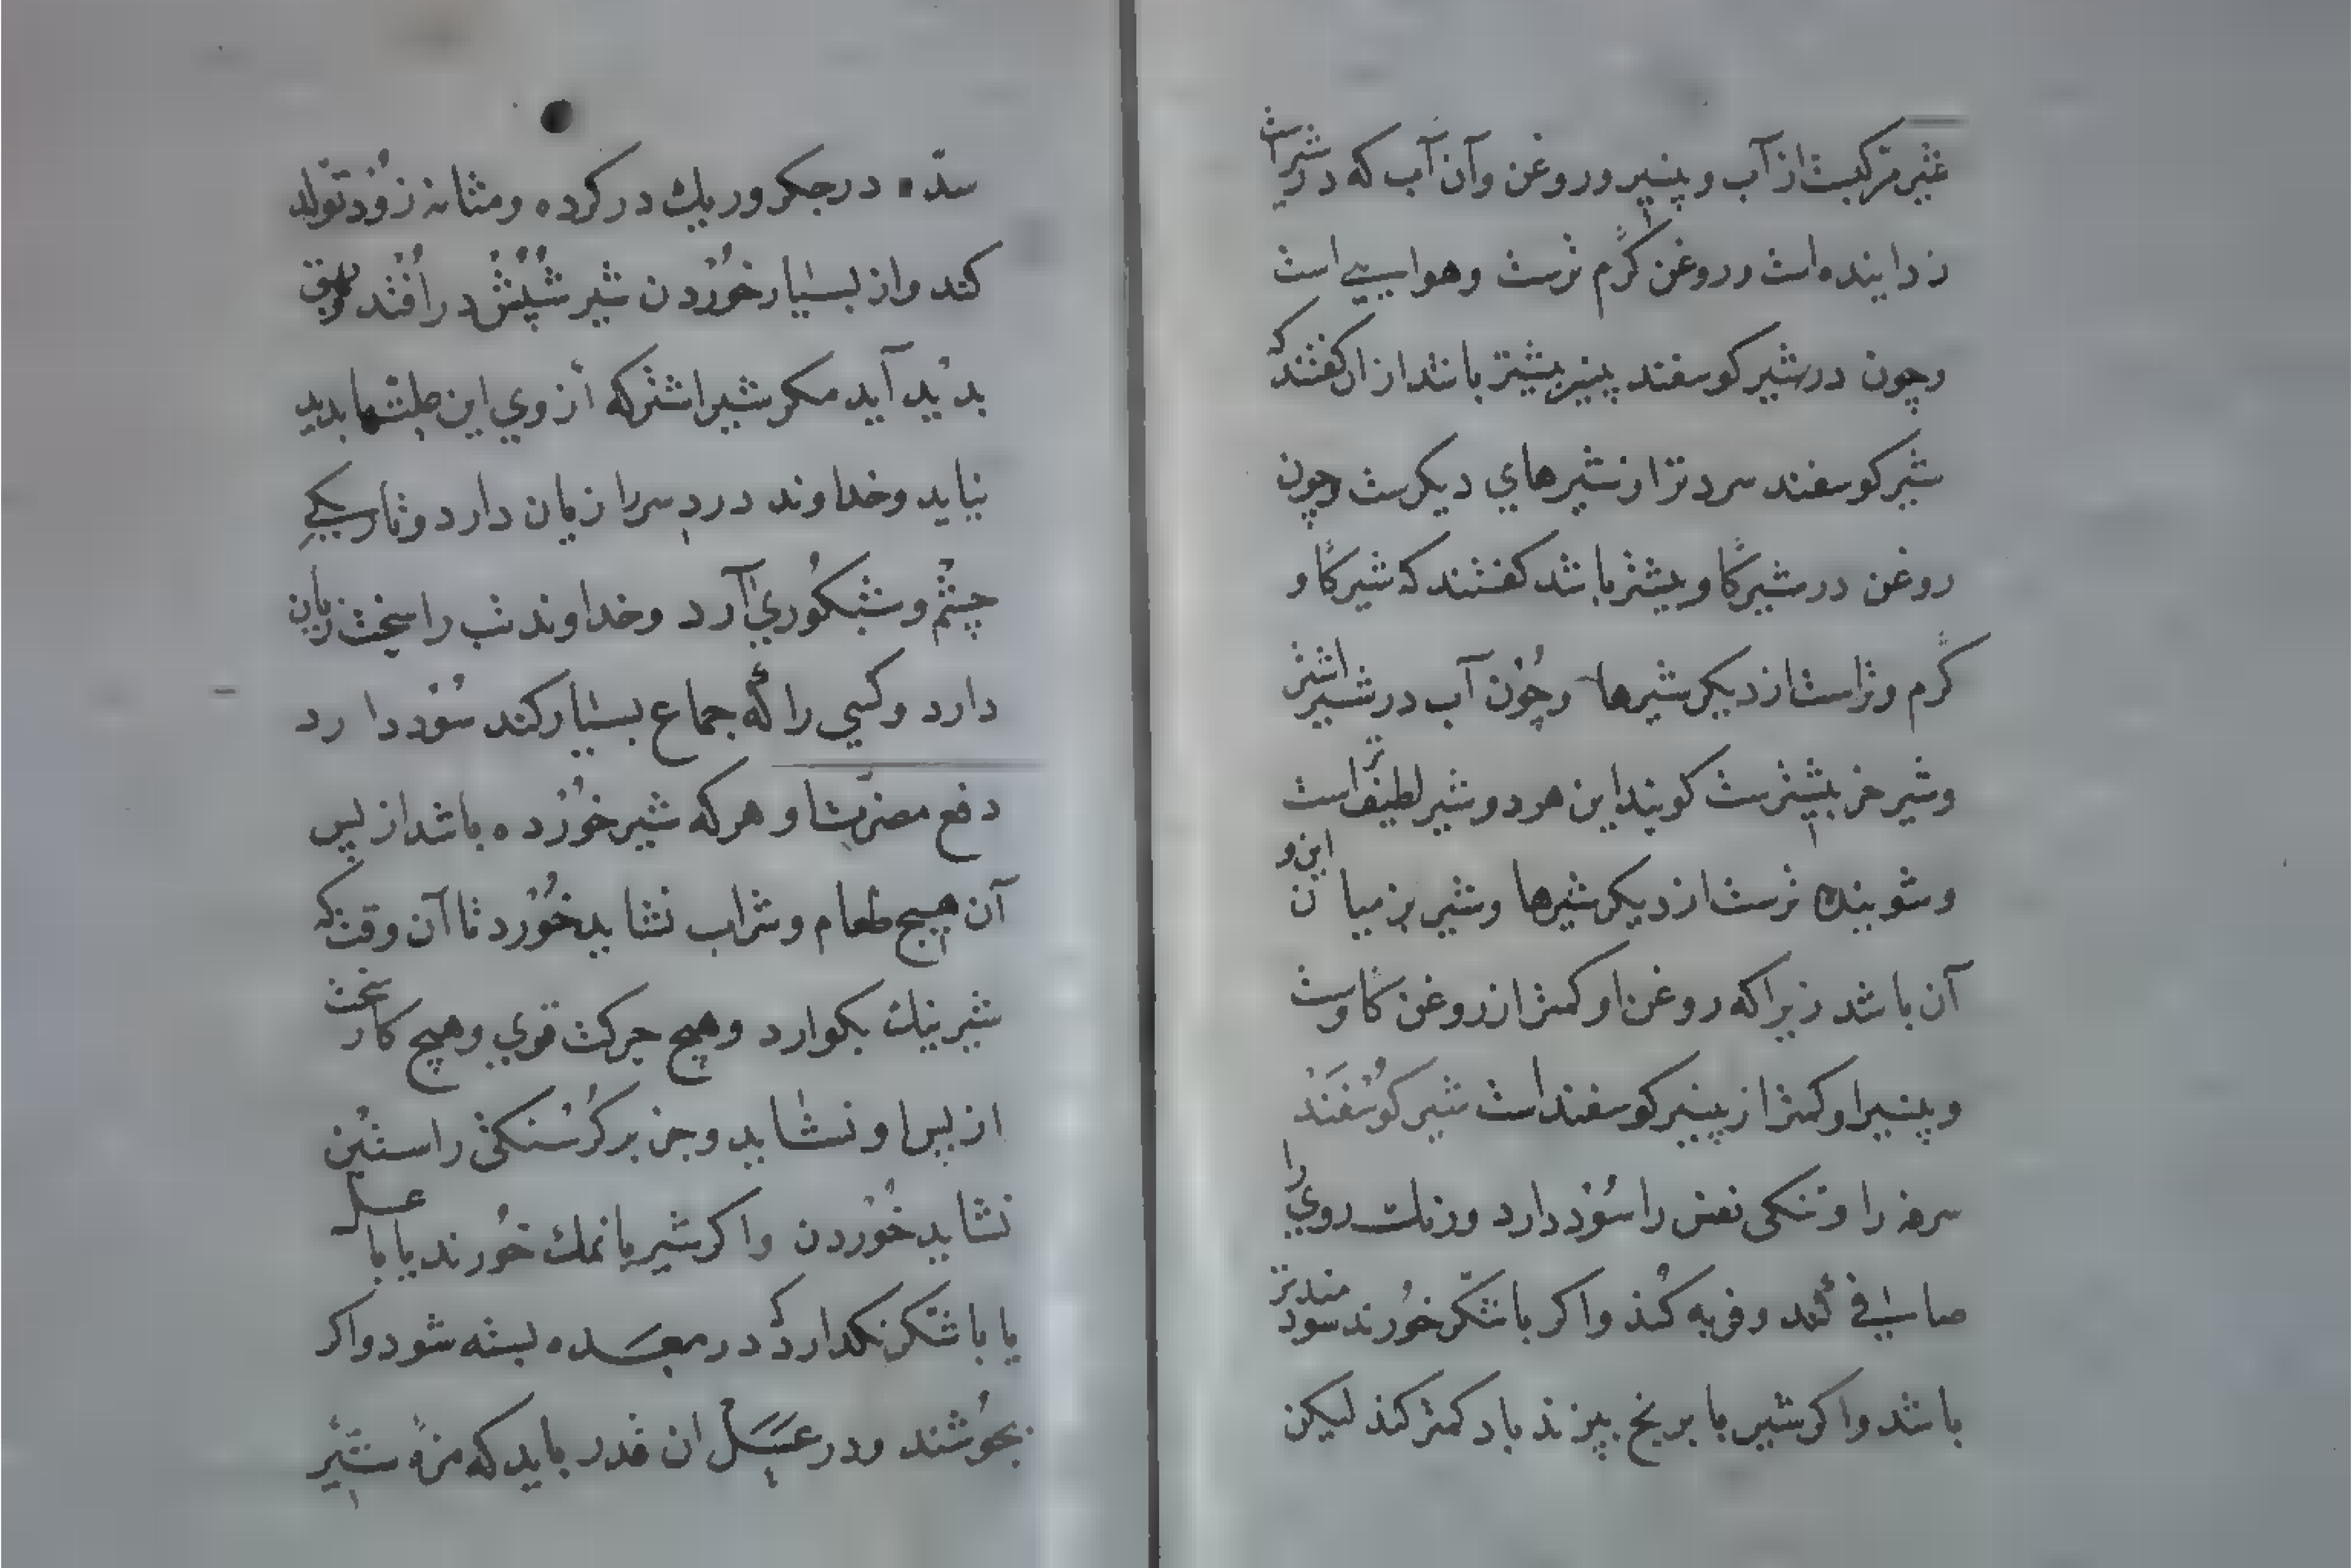 شیر مرکبست از آب و پنیر و روغن وآن آب که در شیر است
زداینده است و روغن گرم ترست وهوایی است
وچون در شیر کوسفند پنیر بیشتر باشد از ان کفتند که
شیر کوسفند سردتر از شیرهای دیکرست وچون
روغن در شیر گاو بیشتر باشد کفتند که شیر گاو
گرم وتر است از دیکر شیرها وچون آب در شیر اشتر
وشیر خر بیشترست کویند این هر دو شیر لطیف تر است
وشوینده ترست از دیکر شیرها وشیر بز میان این و
آن باشد زیرا که روغن او کمتر از روغن گاوست
و پنیر او کمتر از پنیر کوسفند است شیر کوسفند
سرفه را و تنکی نفس را سود دارد ورنك روی را
صافی کند وفربه کند واکر با شکر خورند سودمندتر
باشد واکر شیر با برنج بپزند باد کمتر کند لیکن
سده در جکر وریك در کرده ومثانه زود تولد
کند واز بسیار خوردن شیر شپش در افتد وبهق
بدید آید مکر شیر اشتر که از وی این علتها بدید
نیاید وخداوند درد سر را زیان دارد وتاریکی
چشم وشبکوری آرد وخداوند تب را سخت زیان
دارد وکسی را که جماع بسیار کند سود دارد
دفع مضرت او هر که شیر خورده باشد از پس
آن هیچ طعام وشراب نشاید خورد تا آن وقت که
شیر نیك بکوارد وهیچ حرکت قوی وهیچ کار سخت
از پس او نشاید وجز بر کرسنکی راستین
نشاید خوردن واکر شیر با نمك خورند یا با عسل
یا با شکر نکذارد که در معده بسته شود واکر
بجوشند ودر عسل ان قدر باید که مزه شیر